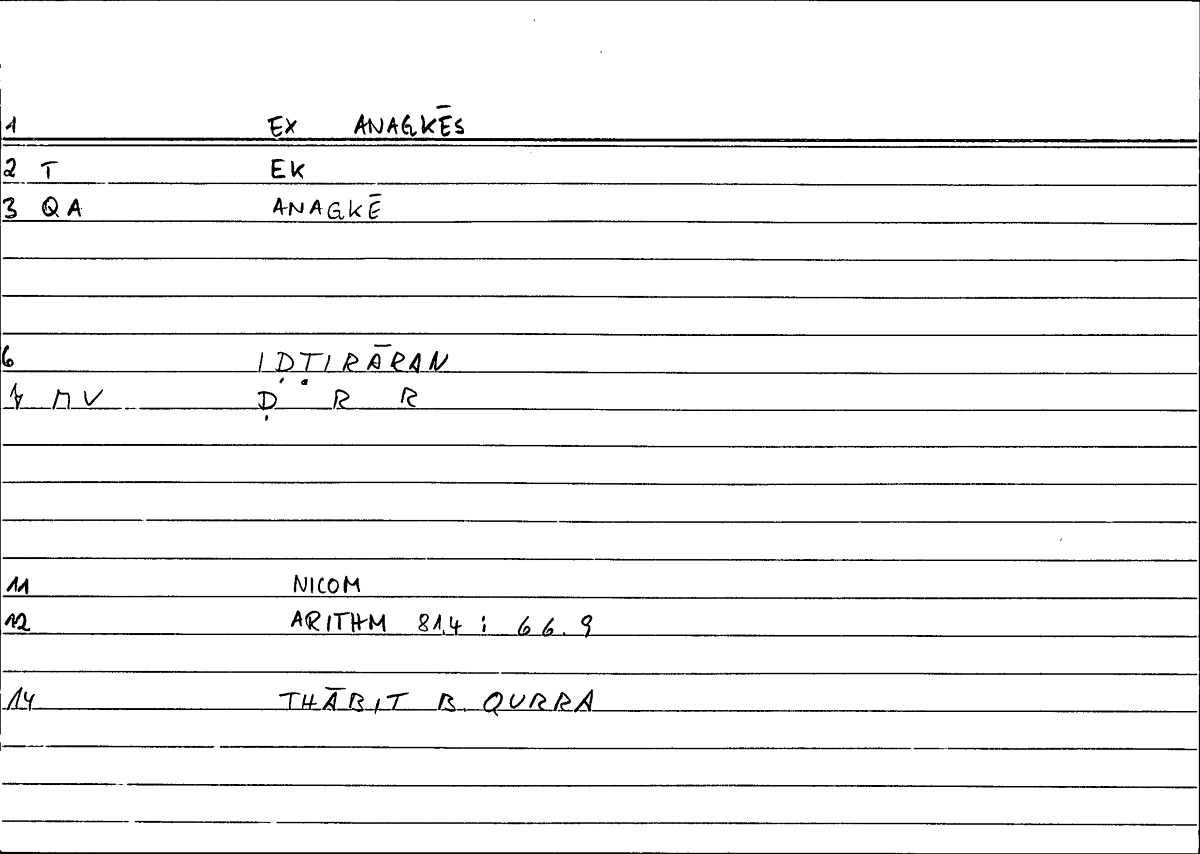 1 EX ANAGKĒS
2 T EK
3 QA ANAGKĒ
6 IḌṬIRĀRAN
7 MV Ḍ R R
11 NICOM
12 ARITHM 81.4 ; 66.9
14 THĀBIT B. QURRA